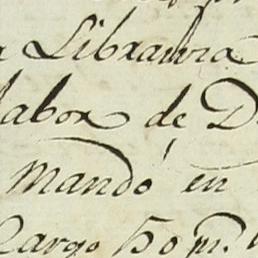 Libraura
labor de D
mandó en
Cargo 50 pr.